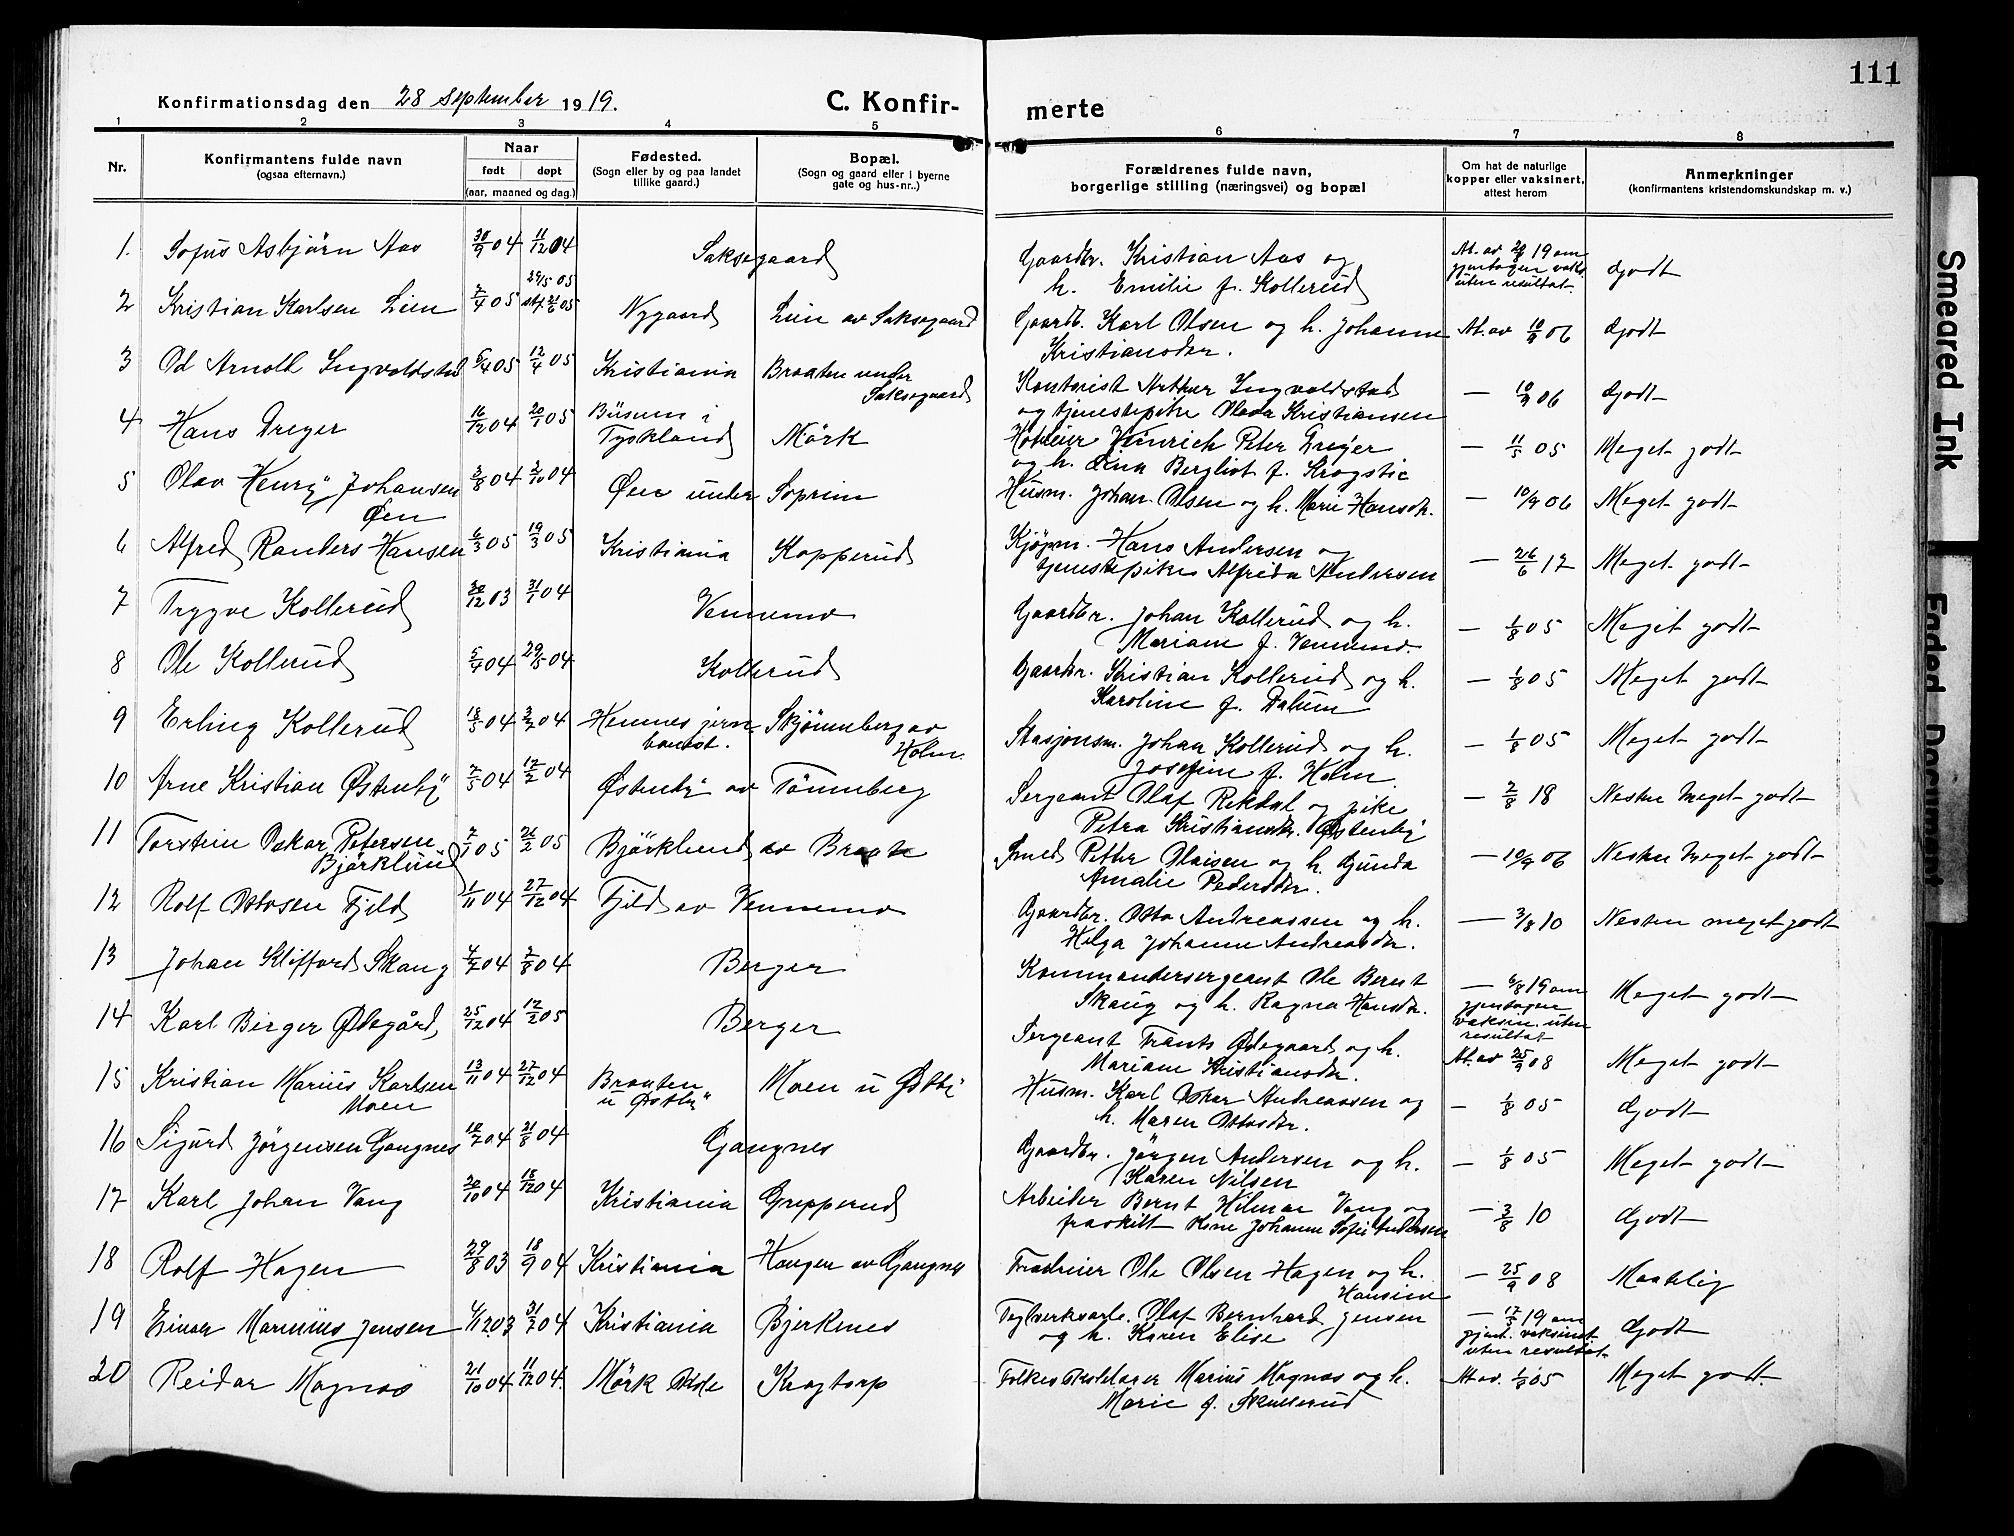 111
Konfirmationsdag den 28 September 1919.
C. Konfir-
merte
1 2 3 4 5 6 7 8
Nr.
Konfirmantens fulde navn
(ogsaa efternavn.)
Naar
født døpt
(aar, maaned og dag.)
Fødested.
(Sogn eller by og paa landet
tillike gaard.)
Bopæl.
(Sogn og gaard eller i byerne
gate og hus-nr..)
Forældrenes fulde navn,
borgerlige stilling (næringsvei) og bopæl
Om hat de naturlige
kopper eller vaksinert,
attest herom
Anmerkninger
(konfirmantens kristendomskundskap m. v.)
1. Sofus Asbjørn Aas 30/9 04 11/12 04 Saksegaard Gaardbr. Kristian Aas og
h. Emilie f. Kollerud
At. av 19 om
gjentagen vaks.
uten resultat. Godt
2 Kristian Karlsen Lien 2/4 05 29/5 05
Nygaard Lien av Saksegaard Gaardb. Karl Olsen og h. Johanne
Kristiansdtr. At. av 10/9 06 Godt
3 Od Arnold Ingvoldstad 5/4 05 12/4 05 Kristiania Braaten under
Saksegaard
Kontorist Arthur Ingvaldstad
og tjenestepike Olava Kristiansen — 10/9 06 Godt
4 Hans Dreyer 16/12 04 20/1 05 Büsum i
Tyskland Mörk
Hotleier Heinrich Peter Dreyer
og h. Lina Bergliot f. Krogstie — 11/5 05 Meget godt
5 Olav Henry Johansen
Øen 2/8 04 2/10 04 Øen under Soprim
Husm. Johan Olsen og h. Marie Hansdtr. — 10/9 06 Meget godt
6 Alfred Randers Hansen 6/3 05 19/3 05 Kristiania Kopperud
Kjøpm. Hans Andersen og
tjenestepike Alfrida Andersen — 26/6 12 Meget godt
7 Trygve Kollerud 30/12 03 31/1 04 Vennemo
Gaardbr. Johan Kollerud og h.
Mariane f. Vennemo. — 1/8 05 Meget godt
8 Ole Kollerud 5/4 04 29/5 04 Kollerud
Gaardbr. Kristian Kollerud og h.
Karoline f. Dalum — 1/8 05 Meget godt
9 Erling Kollerud 18/5 04 3/7 04 Hemnes jern-
banest. Skjønneberg av
Holm.
Stasjonsm. Johan Kollerud og h.
Josefine f. Holm. — 1/8 05 Meget godt
10 Arne Kristian Østenby 7/5 04 12/2 04 Østenby av Tønneberg
Sergeant Olaf Rekdal og pike
Petra Kristiansdtr. Østenby — 2/8 18 Nesten Meget godt
11 Torstein Oskar Petersen
Bjørklund 7/1 05 26/2 05 Bjørklund av Braate
Smed Petter Olaisen og h. Gunda
Amalie Pedersdtr. — 10/9 06 Nesten Meget godt
12 Rolf Ottosen Fjeld 1/11 04 27/12 04 Fjeld av Vennemo
Gaardbr. Otto Andreassen og h.
Helga Johanne Andreasdtr. — 3/8 10 Nesten meget godt
13 Johan Klifford Skaug 4/7 04 7/8 04 Berger
Kommandersergeant Ole Bernt
Skaug og h. Ragna Hansdtr. — 6/8 19 om
gjentagen
vaksin. uten
resultat Meget godt
14 Karl Birger Ødegård 25/12 04 12/2 05 Berger
Sergeant Frants Ødegaard og h.
Mariane Kristiansdtr. At. av 25/9 08 Meget godt
15 Kristian Marius Karlsen
Moen 13/11 04 27/12 04 Braaten
u Østby Moen u Østby
Husm. Karl Oskar Andreassen og
h. Maren Ottosdtr. — 1/8 05 Godt
16 Sigurd Jørgensen Gangnes 10/7 04 21/8 04 Gangnes
Gaardbr. Jørgen Andersen og h.
Karen Nilsen — 1/8 05 Meget godt
17 Karl Johan Vang 20/10 04 18/12 04 Kristiania Grepperud
Arbeider Bernt Hilmar Vang og
fraskilt Kone Johanne Sofie Andersen — 3/8 10 Godt
18 Rolf Hagen 29/8 03 18/9 04 Kristiania Haugen av Gangnes
Fradreier Ole Olsen Hagen og h.
Hansine — 25/9 08 Maadelig
19 Einar Marinius Jensen 4/12 03 31/7 04 Kristiania Bjerkenes
Teglverksarb. Olaf Bernhard Jensen
og h. Karen Elise — 17/5 19 om
gjent. vaksinat.
uten resultat. Godt
20 Reidar Magnas 21/10 04 11/12 04. Mörk Skole Krogtorp
Folkeskolelærer Marius Magnas og h.
Marie f. Skullerud At. av. 1/8 05 Meget godt.
Smeared Ink
Faded Document